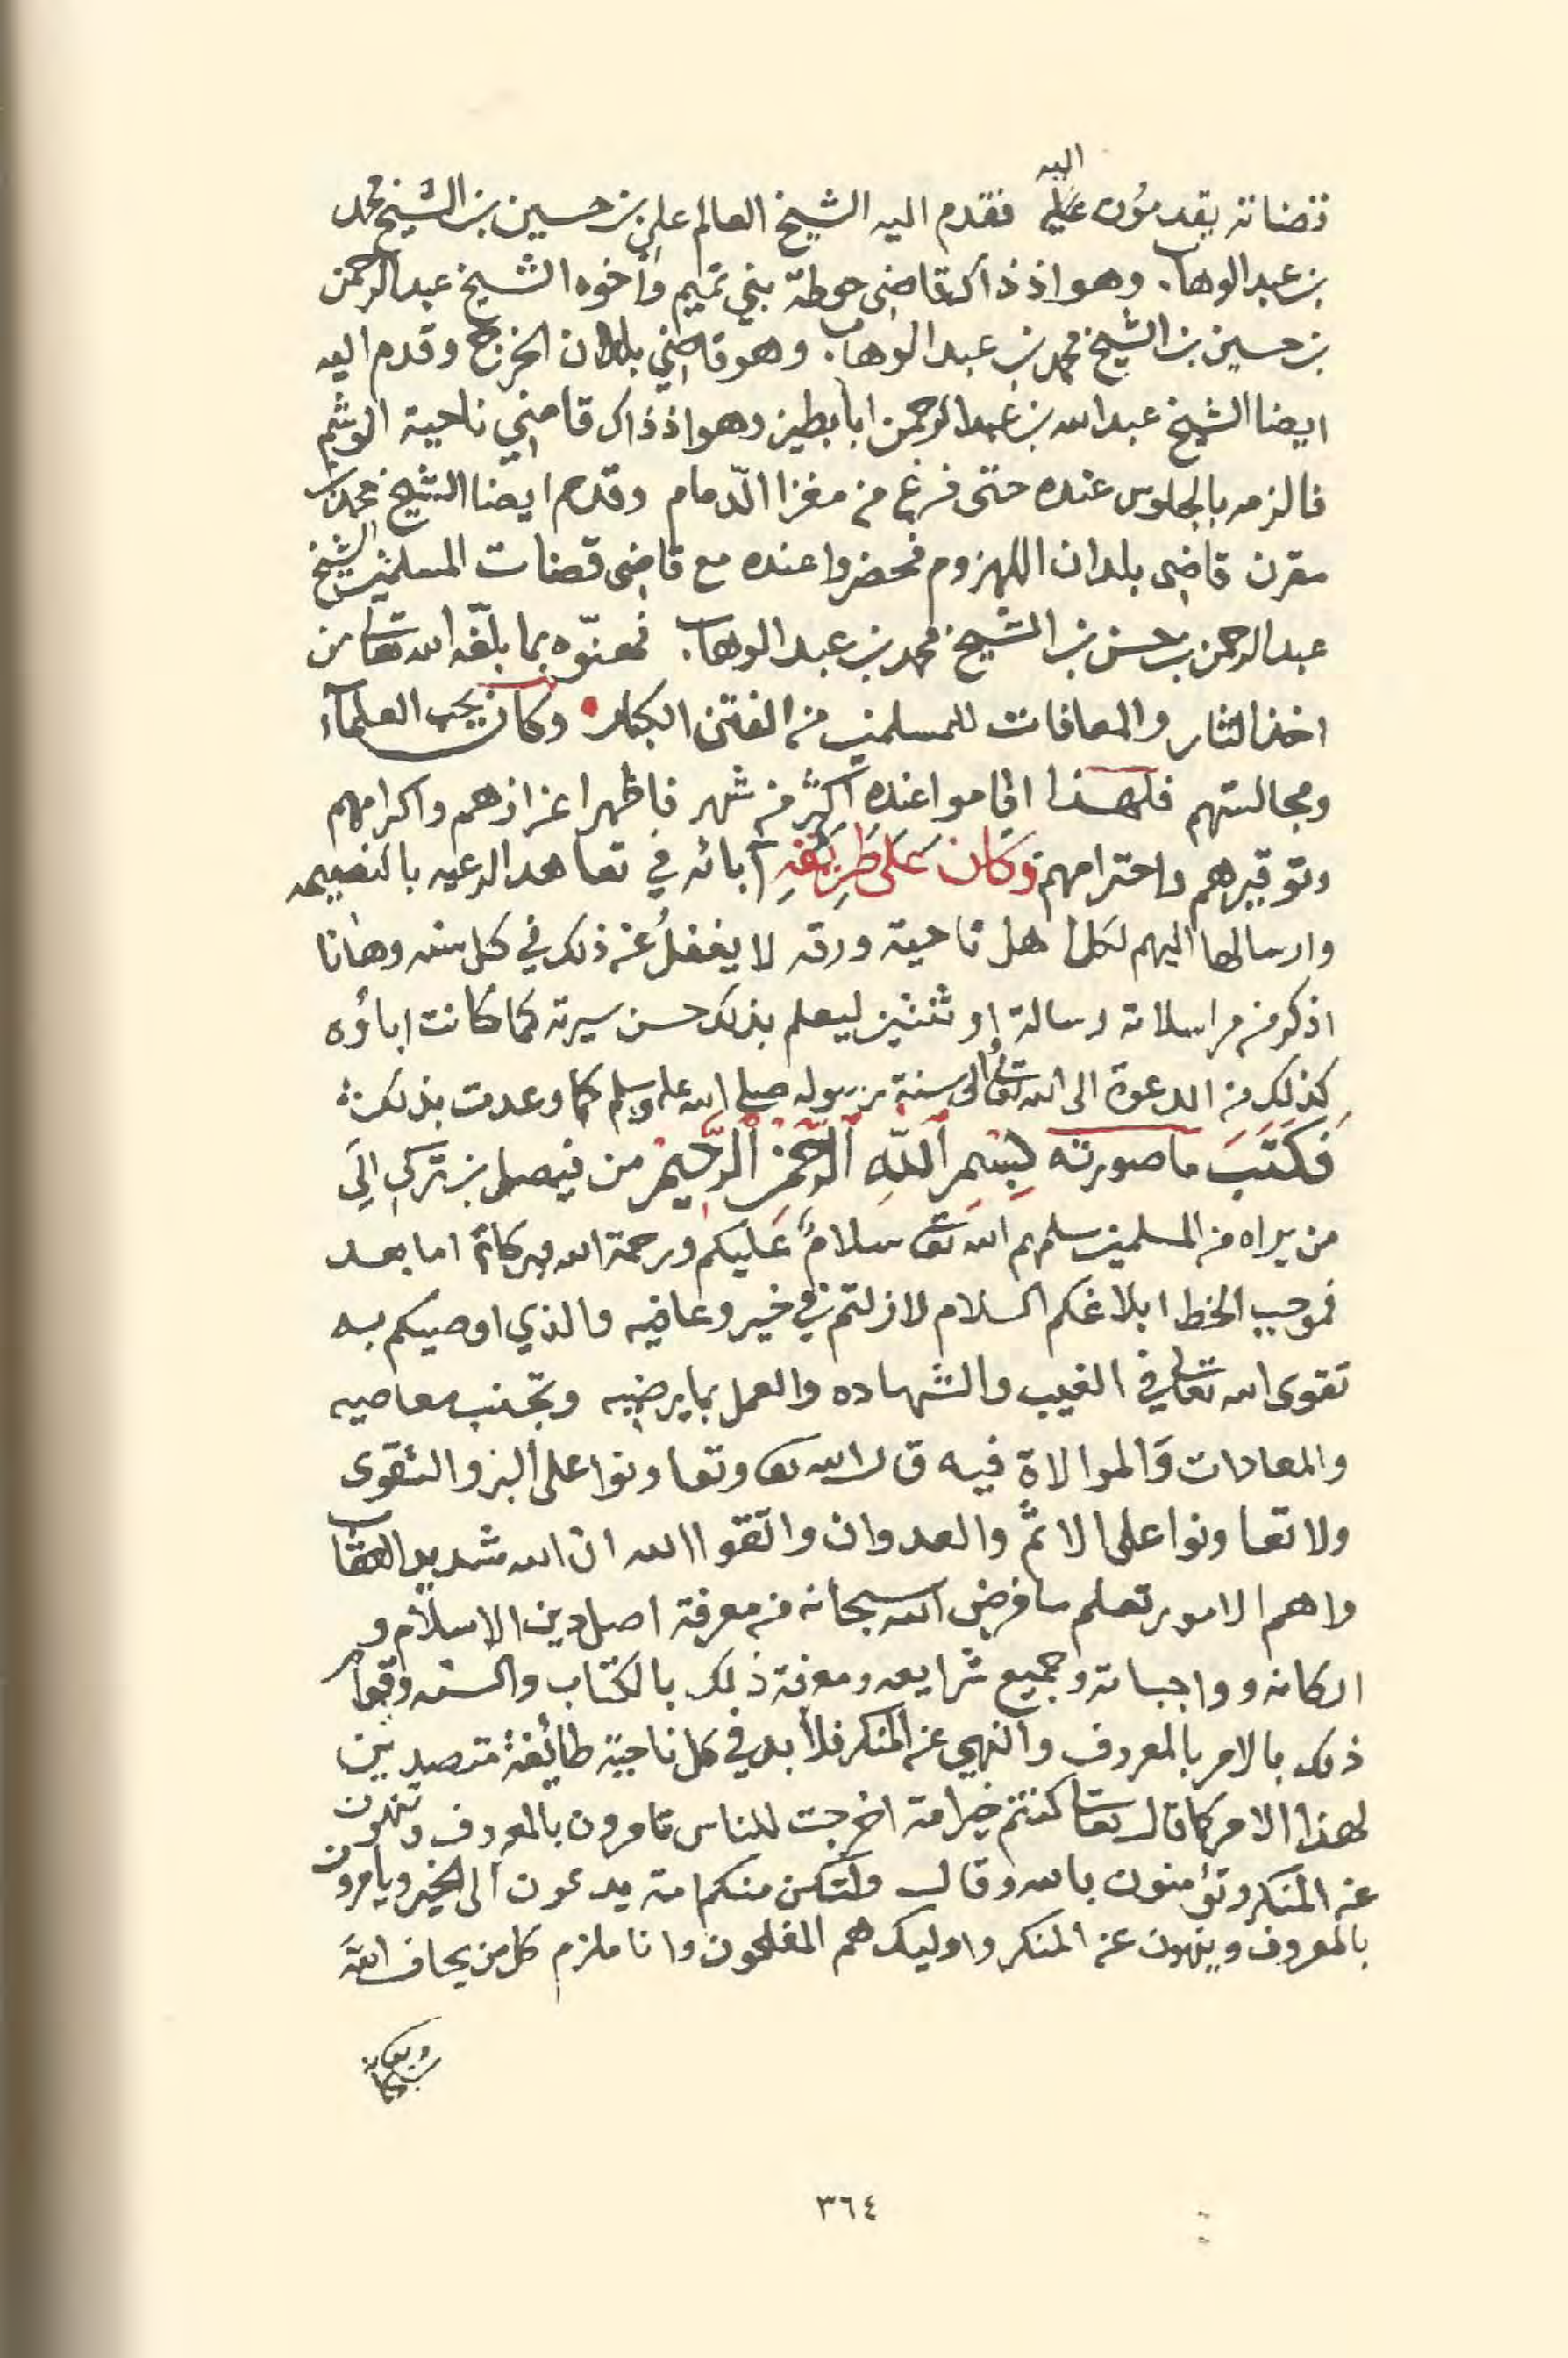 قضاته يقدمون عليه اليه فقدم اليه الشيخ العالم علي بن حسين بن الشيخ محمد
بن عبد الوهاب. وهو اذ ذاك قاضي حوطة بني تميم وأخوه الشيخ عبد الرحمن
بن حسين بن الشيخ محمد بن عبد الوهاب. وهو قاضي بلدان الخرج وقدم اليه
ايضا الشيخ عبد الله بن عبد الرحمن ابا بطين وهو اذ ذاك قاضي ناحية الوشم
فالزمه بالجلوس عنده حتى فرغ من مغزا الدّمام وقدم ايضا الشيخ محمد بن
مقرن قاضي بلدان المهزوم فحضروا عنده مع قاضي قضات المسلمين الشيخ
عبد الرحمن بن حسن بن الشيخ محمد بن عبد الوهاب. فهنّوه بما بلّغه الله تعالى من
اخذ الثار والمعافات للمسلمين من الفتن الكبار وكان يحب العلمآء
ومجالستهم فلهذا اقاموا عنده اكثر من شهر فاظهر اعزازهم واكرامهم
وتوقيرهم واحترامهم وَكَانَ عَلَى طَرِيقَةِ آبائه في تعاهد الرعيه بالنصيحه
وارسالها اليهم لكل اهل ناحية ورقه لا يغفلُ عن ذلك في كل سنه وها انا
اذكر من مراسلاته رسالة او ثنتين ليعلم بذلك حسن سيرته كما كانت اباؤه
كذلك من الدعوة الى الله تعالى والى سنة رسوله صلى الله عليه وسلم كما وعدت بذلك
فَكَتَبَ ما صورته بِسْمِ اللَّهِ الرَّحمٰنِ الرَّحِيمِ من فيصل بن تركي الَى
من يراه من المسلمين سلمهم الله تعالى سلامٌ عَليكم ورحمة الله وبركاته اما بعد
فموجب الخط ابلاغكم السلام لا زلتم في خير وعافيه والذي اوصيكم به
تقوى الله تعالى في الغيب والشهاده والعمل بما يرضيه وتجنب معاصيه
والمعادات والموالاة فيه قال الله تعالى وتعاونوا على البر والتقوى
ولا تعاونوا على الاثم والعدوان واتقوا الله ان الله شديد العقاب
واهم الامور تعلم ما فرض الله سبحانه من معرفة اصل دين الاسلام و
اركانه وواجباته وجميع شرايعه ومعرفة ذلك بالكتاب والسنه وقوام
ذلك بالامر بالمعروف والنهي عن المنكر فلا بد في كل ناحية طائفة متصدين
لهذا الامر كما قال تعالى كنتم خير امة اخرجت للناس تامرون بالمعروف وتنهون
عن المنكر وتؤمنون بالله وقال ولتكن منكم امة يدعون الى الخير ويأمرون
بالمعروف وينهون عن المنكر واوليك هم المفلحون وانا ملزم كل من يخاف الله
٣٦٤